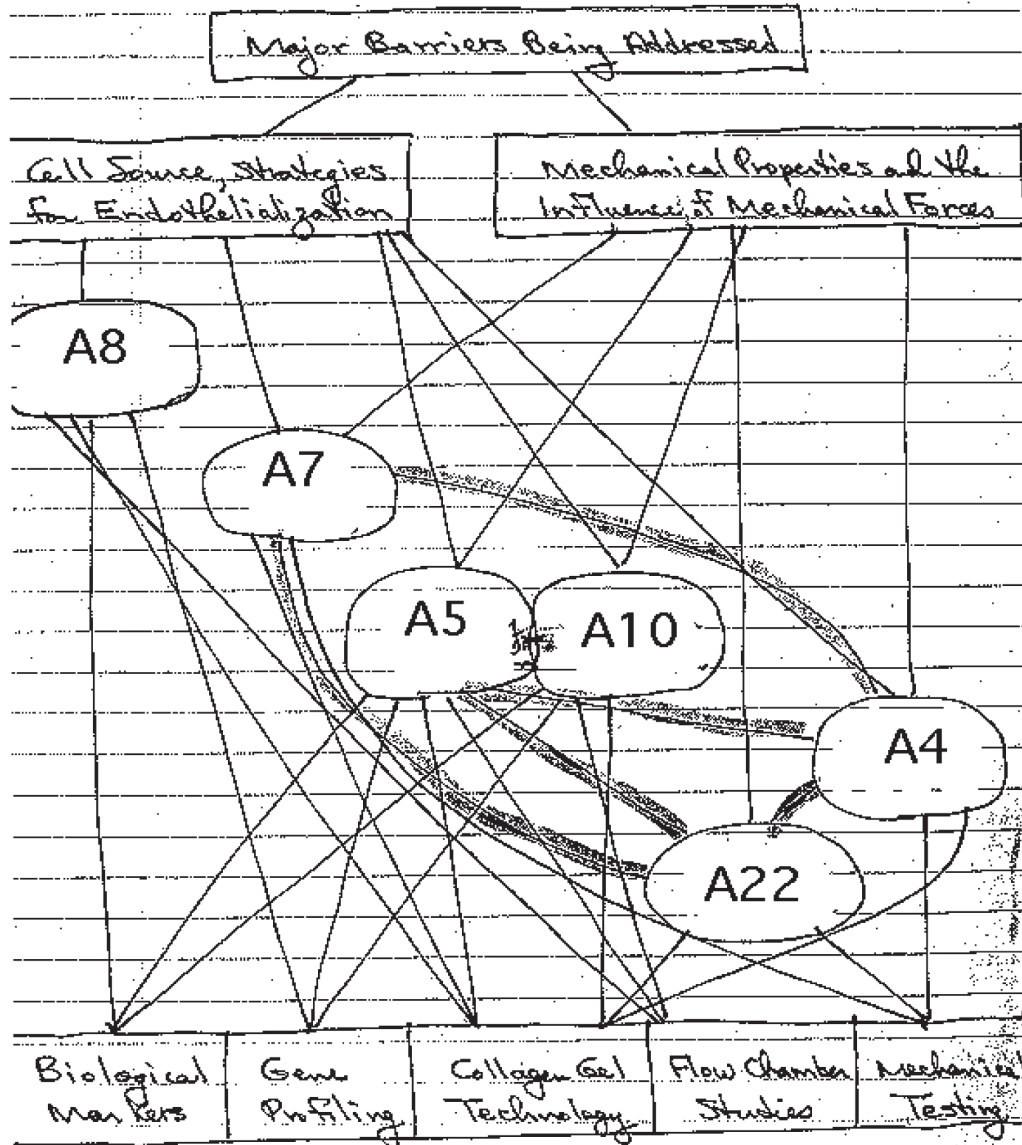 Major Barriers Being Addressed
Cell Source, Strategies
for Endothelialization
Mechanical Properties and the
Influence of Mechanical Forces
A8
A7
A5
A10
A4
A22
Biological
Markers
Gene
Profiling
Collagen Gel
Technology
Flow Chamber
Studies
Mechanical
Testing